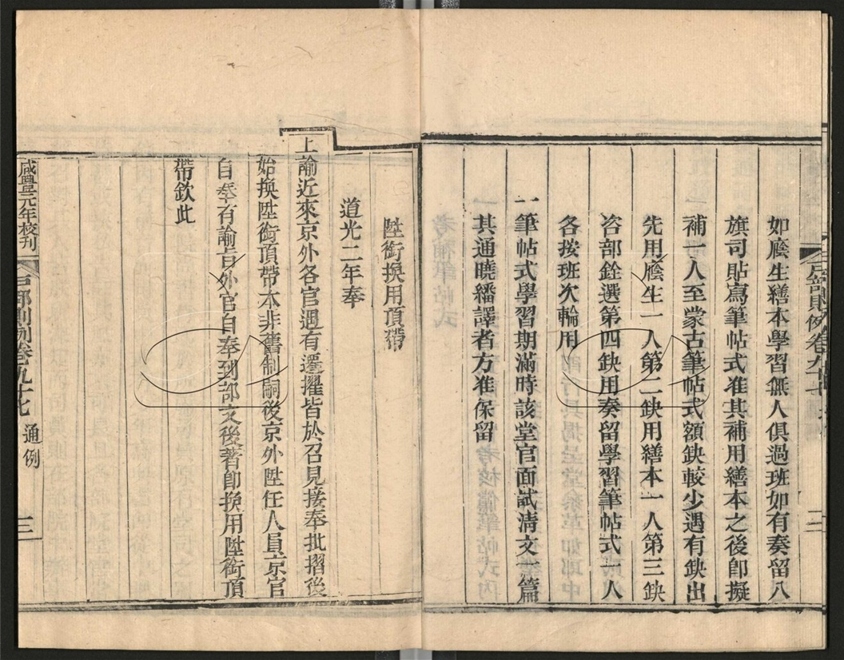 如廕生繕本學習無人俱過班如有奏留八
旗司貼寫筆帖式准其補用繕本之後卽擬
補一人至蒙古筆帖式額缺較少遇有缺出
先用廕生一人第二缺用繕本一人第三缺
咨部銓選第四缺用奏留學習筆帖式一人
各按班次輪用
一筆帖式學習期滿時該堂官面試淸文一篇
其通曉繙譯者方准保留
陞銜換用頂帶
道光二年奉
上諭近來京外各官遇有遷擢皆於召見接奉批摺後
始換陞銜頂帶本非舊制嗣後京外陞任人員京官
自奉有諭旨外官自奉到部文後著卽換用陞銜頂
帶欽此
咸豐元年校刊
戶部則例卷九十七
通例
三